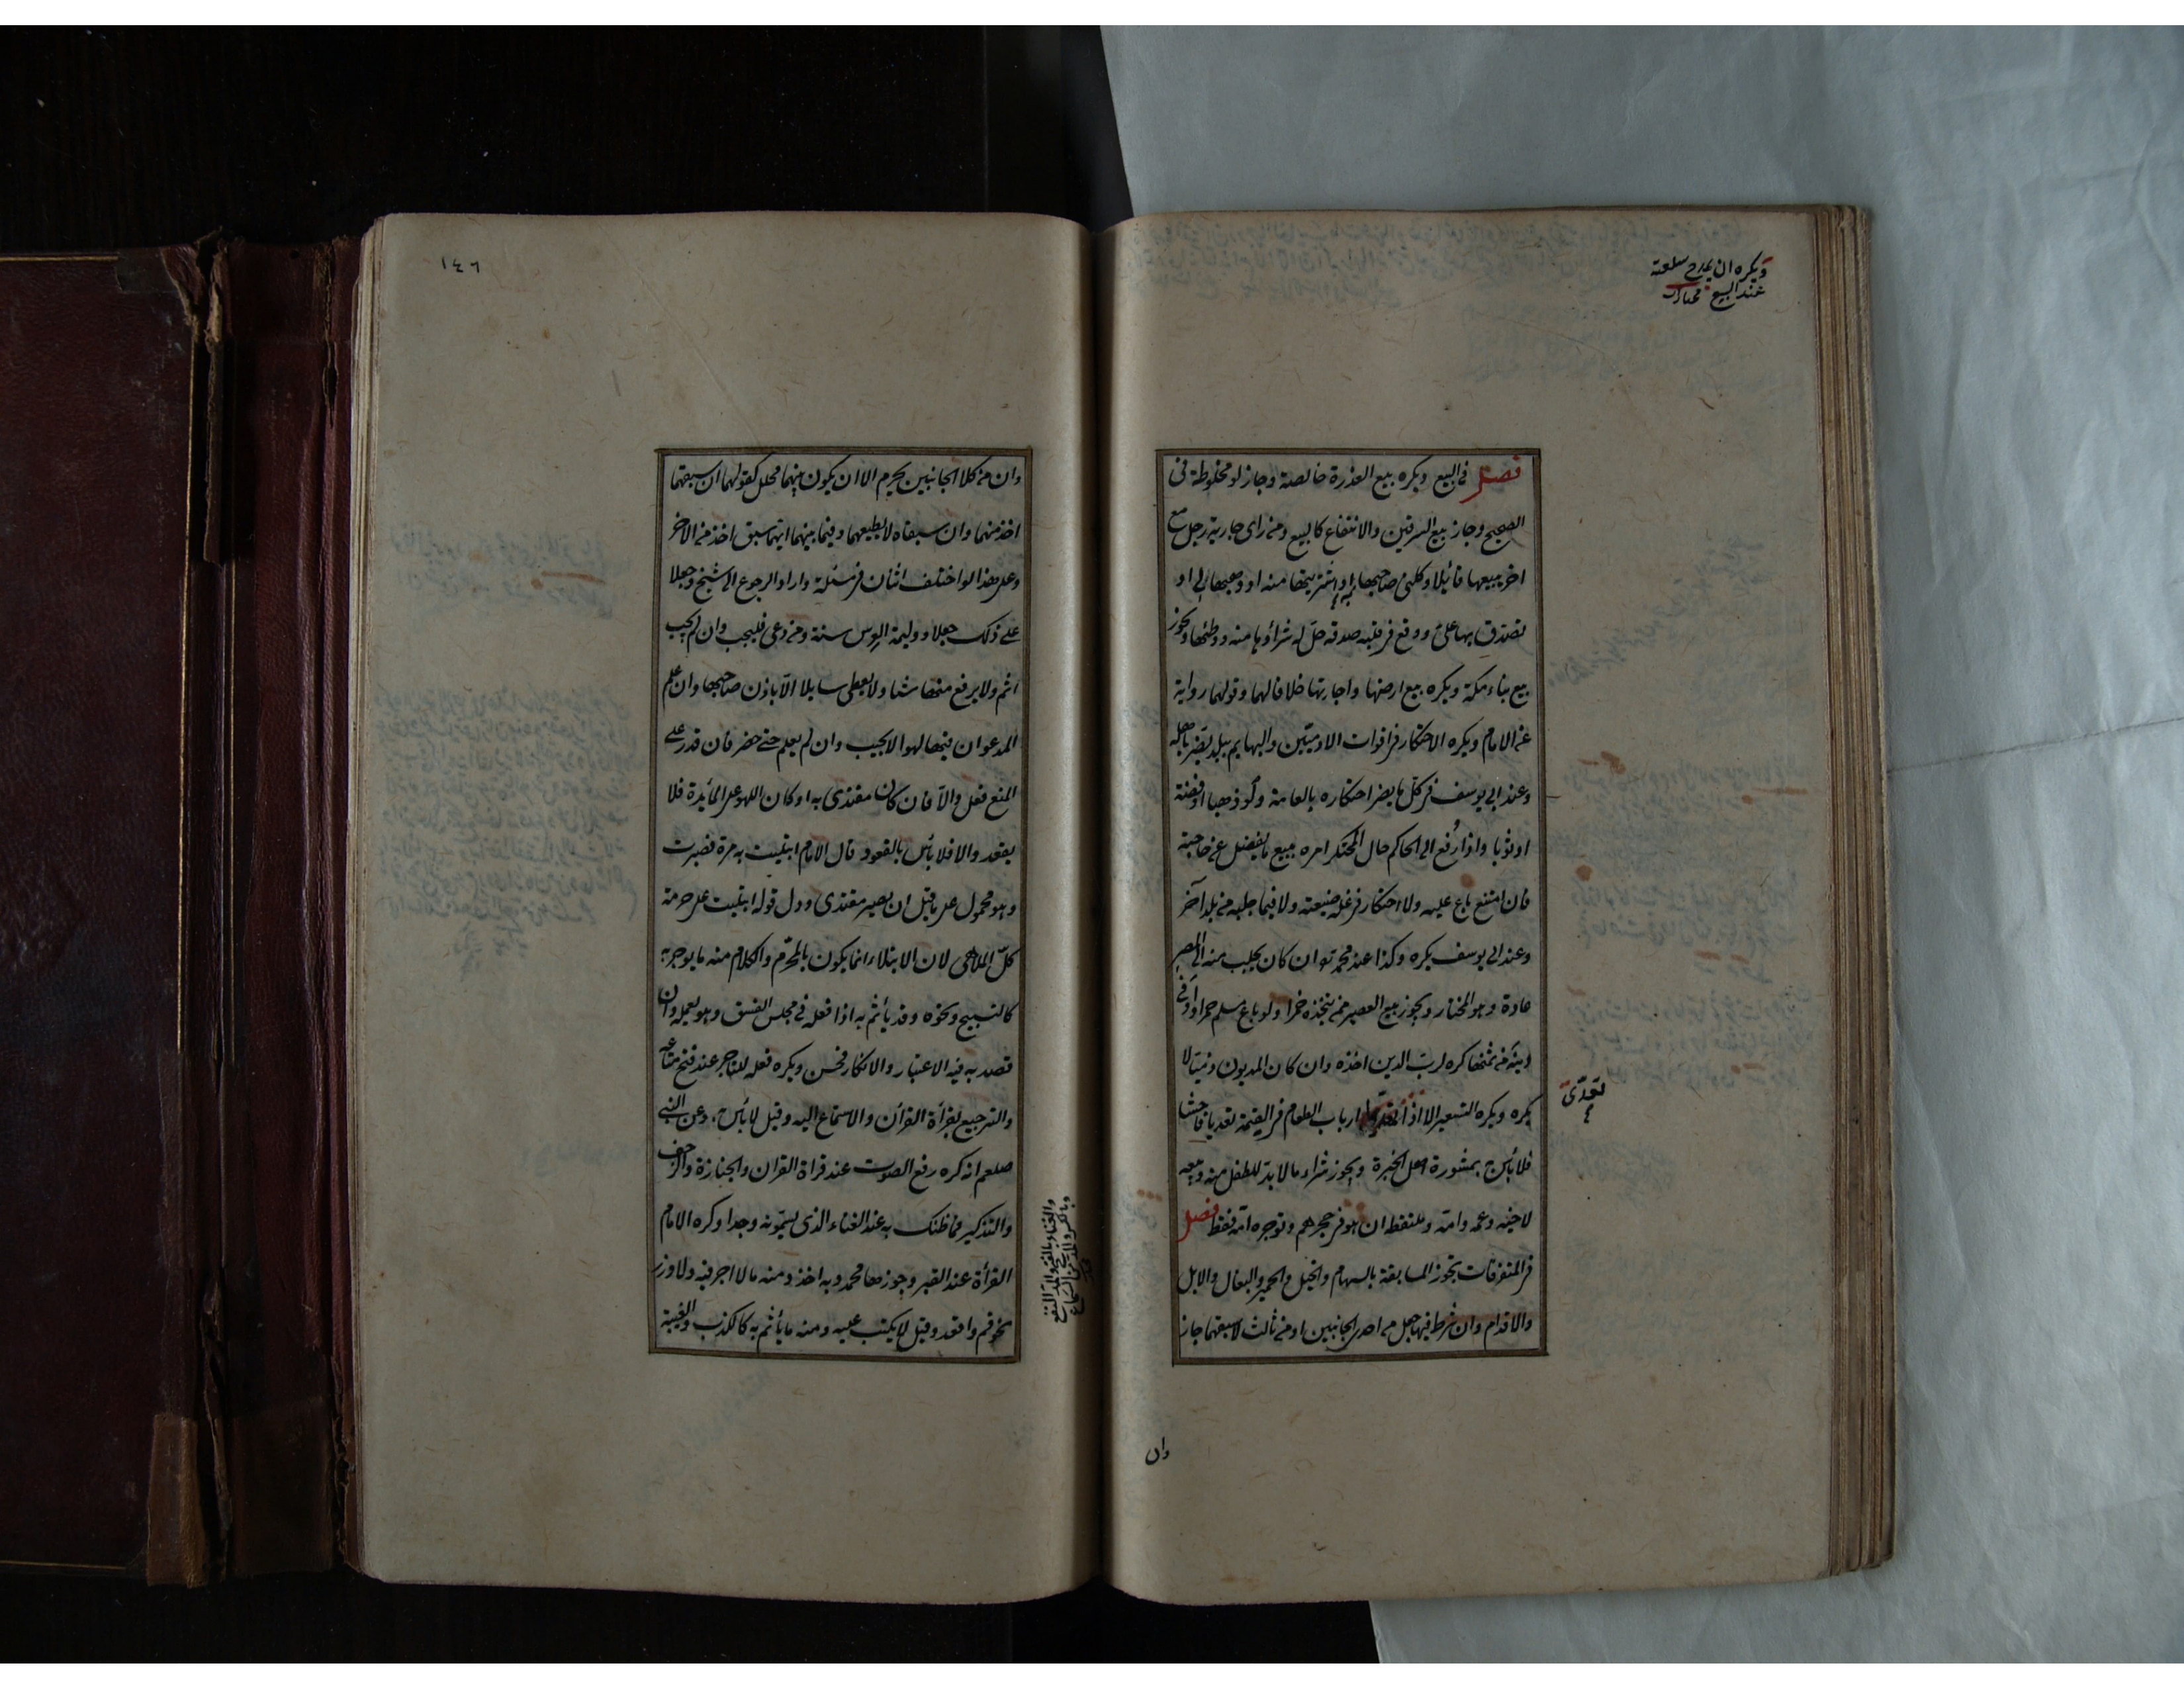 ويكره ان يمدح سلعته
عند البيع مختارات
فصل في البيع ويكره بيع العذرة خالصة وجاز لو مخلوطة في
الصحيح وجاز بيع السرقين والانتفاع كالبيع ومن راى جارية رجل مع
اخر يبيعها قائلا وكلني صاحبها به او اشتريتها منه او وهبها لي او
تصدق بها علي ووقع في قلبه صدقه حل له شراؤها منه ووطئها ويجوز
بيع بناء مكة ويكره بيع ارضها واجارتها خلافا لهما وقولهما رواية
عن الامام ويكره الاحتكار في اقوات الادميين والبهايم ببلد يضر باهله
وعند ابي يوسف في كل ما يضر احتكاره بالعامة ولو ذهبا او فضة
او ثوبا واذا رُفع الى الحاكم حال المحتكر امره ببيع ما يفضل عن حاجته
فان امتنع باع عليه ولا احتكار في غلة ضيعته ولا فيما جلبه من بلد آخر
وعند ابي يوسف يكره وكذا عند محمد ان كان يجلب منه الى المصر
عادة وهو المختار ويجوز بيع العصير ممن يتخذه خمرا ولو باع مسلم خمرا واوفى
دينه من ثمنها كره لرب الدين اخذه وان كان المديون ذميا لا
يكره ويكره التسعير الا اذا تعدى ارباب الطعام في القيمة تعديا فاحشا
تعدّى
فلا بأس ح بمشورة اهل الخبرة ويجوز شراء ما لا بد للطفل منه وبيعه
لاخيه وعمه وامه وللتقط ان هو في حجرهم وتوجره امه فقط فصل
في المتفرقات تجوز المسابقة بالسهام والخيل والحمير والبغال والابل
والاقدام وان شرط فيها جعل من احد الجانبين او من ثالث لاسبقهما جاز
وان
١٤٦
وان من كلا الجانبين يحرم الا ان يكون بينهما محلل كقولهما ان سبقهما
اخذ منهما وان سبقاه لا يعطيهما وفيما بينهما ايهما سبق اخذ من الاخر
وعلى هذا لو اختلف اثنان في مسئلة وارادا الرجوع الى شيخ وجعلا
على ذلك جعلا ووليمة العرس سنة ومن دعى فليجب وان لم يجب
اثم ولا يرفع منها شئا ولا يعطى سايلا الا باذن صاحبها وان علم
المدعو ان فيها لهوا لا يجيب وان لم يعلم حتى حضر فان قدر على
المنع فعل والا فان كان مقتدى به او كان اللهو على المائدة فلا
يقعد والا فلا بأس بالقعود قال الامام ابتليت به مرة فصبرت
وهو محمول على ما قبل ان يصير مقتدى ودل قوله ابتليت على حرمة
كل الملاهي لان الابتلاء انما يكون بالمحرم والكلام منه ما يوجر به
كالتسبيح ونحوه وقد يأثم به اذا فعله في مجلس الفسق وهو يعمله وان
قصد به فيه الاعتبار والانكار فحسن ويكره فعله للتاجر عند فتح متاعه
والترجيع بقرأة القرأن والاستماع اليه وقيل لا بأس به وعن النبي
صلعم انه كره رفع الصوت عند قراة القران والجنازة والزحف
والتذكير فما ظنك به عند الغناء الذي يسمونه وجدا وكره الامام
القرأة عند القبر وجوزها محمد وبه اخذ ومنه ما لا اجر فيه ولا وزر
نحو قم واقعد وقيل لا يكتب عليه ومنه ما يأثم به كالكذب والغيبة
والغناء بالفتح والمد النفع
وبالكسر والمد من السماع